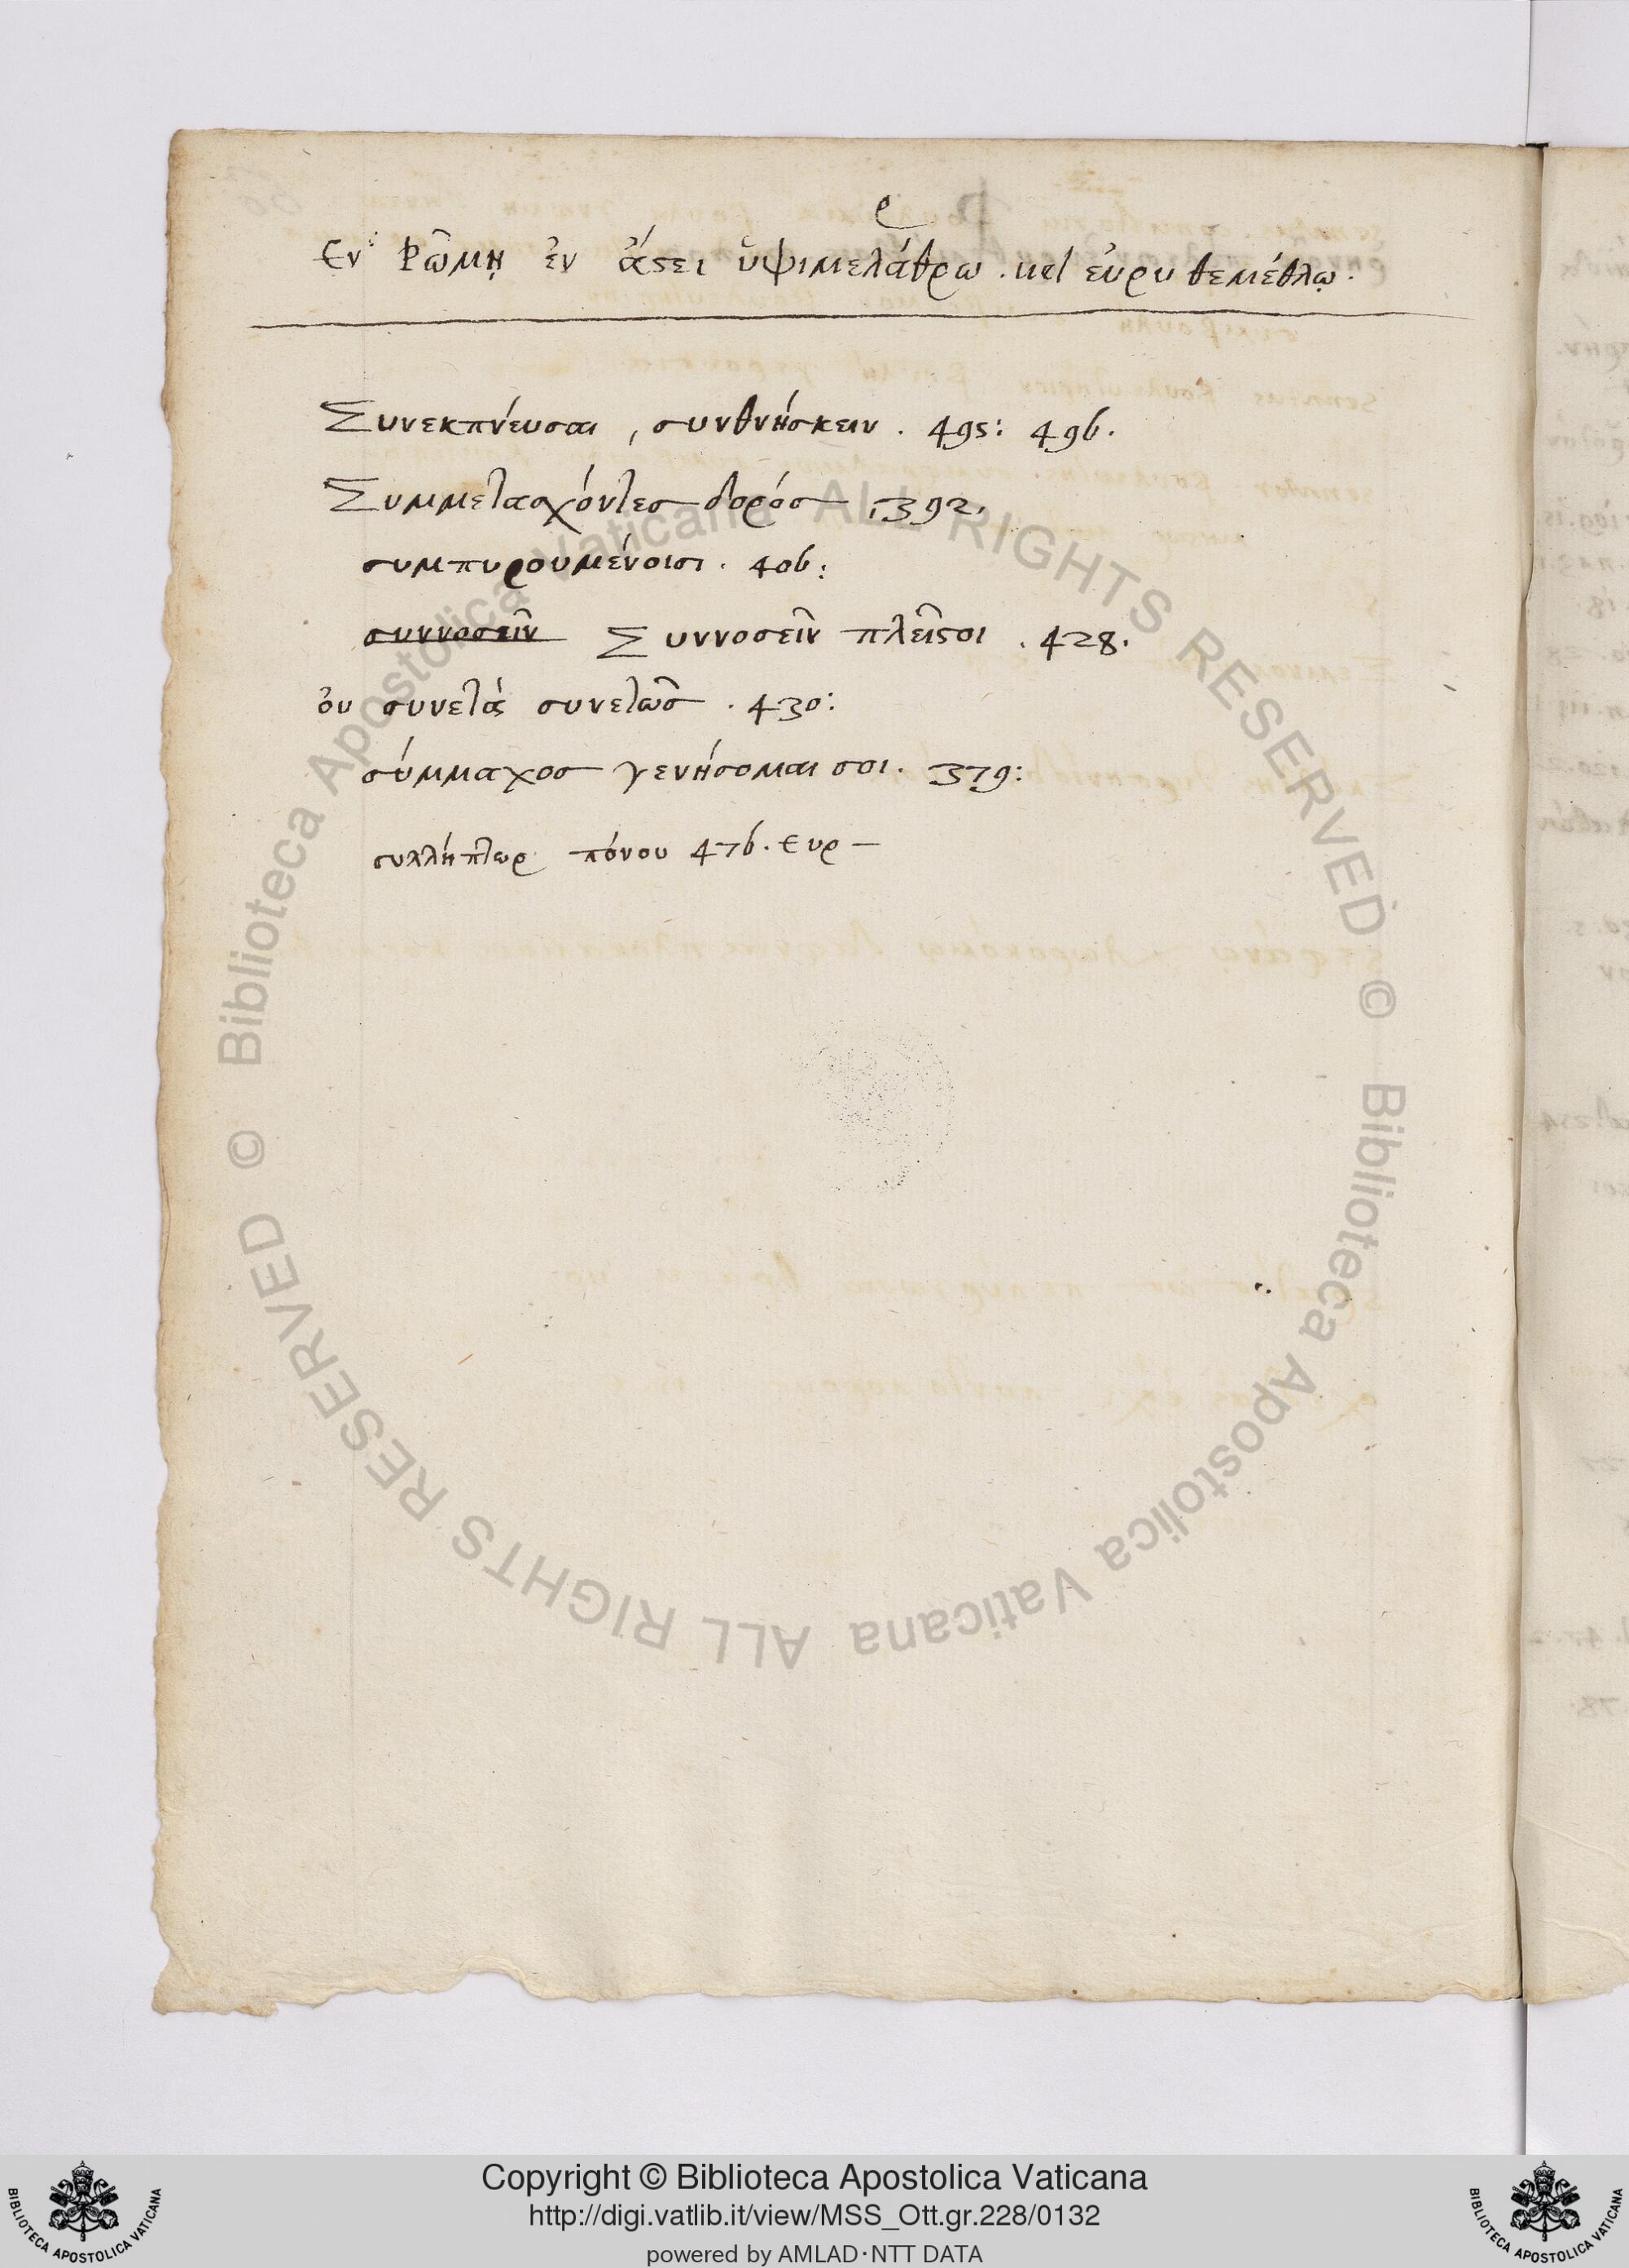 ρ
Εν Ρώμῃ ἐν ἄστει ὑψιμελάθρω . uel εὐρυθεμέθλῳ .
Συνεκπνέυσαι , συνθνήσκειν . 495: 496.
Συμμετασχόντες δορός . 392.
συμπυρουμένοισι . 406:
συννοσεῖν Συννοσεῖν πλεῖστοι . 428.
ὀυ συνετὰ συνετῶς . 430:
σύμμαχος γενήσομαι σοι . 379:
συλλήπτωρ πόνου 476. Ευρ —
Biblioteca Apostolica Vaticana ALL RIGHTS RESERVED ©
Biblioteca Apostolica Vaticana ALL RIGHTS RESERVED ©
Copyright © Biblioteca Apostolica Vaticana
http://digi.vatlib.it/view/MSS_Ott.gr.228/0132
powered by AMLAD·NTT DATA
BIBLIOTECA APOSTOLICA VATICANA
BIBLIOTECA APOSTOLICA VATICANA